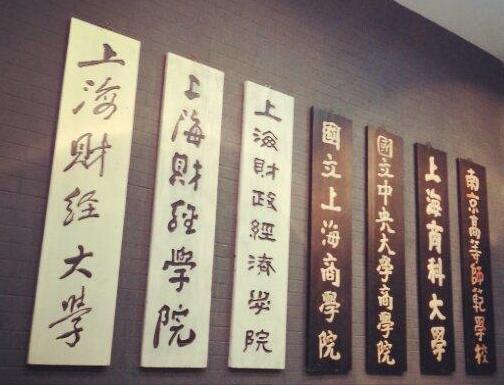 上海财经大学
上海财经学院
上海财政經濟学院
國立上海商學院
國立中央大學商學院
上海商科大學
南京高等師範學校